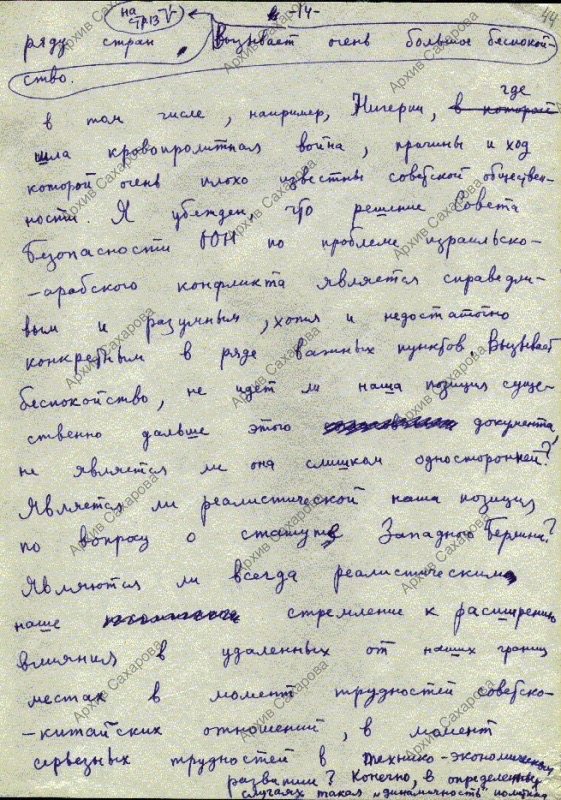 на стр 13
-14-
44
ряду стран. Вызывает очень большое беспокой-
ство.
в том числе, например, Нигерии, где в которой
шла кровопролитная война, причины и ход
которой очень плохо известны советской обществен-
ности. Я убежден, что решение Совета
Безопасности ООН по проблеме израильско-
-арабского конфликта является справедли-
вым и разумным, хотя и недостаточно
конкретным в ряде важных пунктов. Вызывает
беспокойство, не идет ли наша позиция суще-
ственно дальше этого документа,
не является ли она слишком односторонней?
Является ли реалистической наша позиция
по вопросу о статуте Западного Берлина?
Являются ли всегда реалистическим
наше стремление к расширению
влияния в удаленных от наших границ
местах в момент трудностей советско-
-китайских отношений, в момент
серьезных трудностей в технико-экономическом
развитии? Конечно, в определенных
случаях такая „динамичность" политика
Архив Сахарова